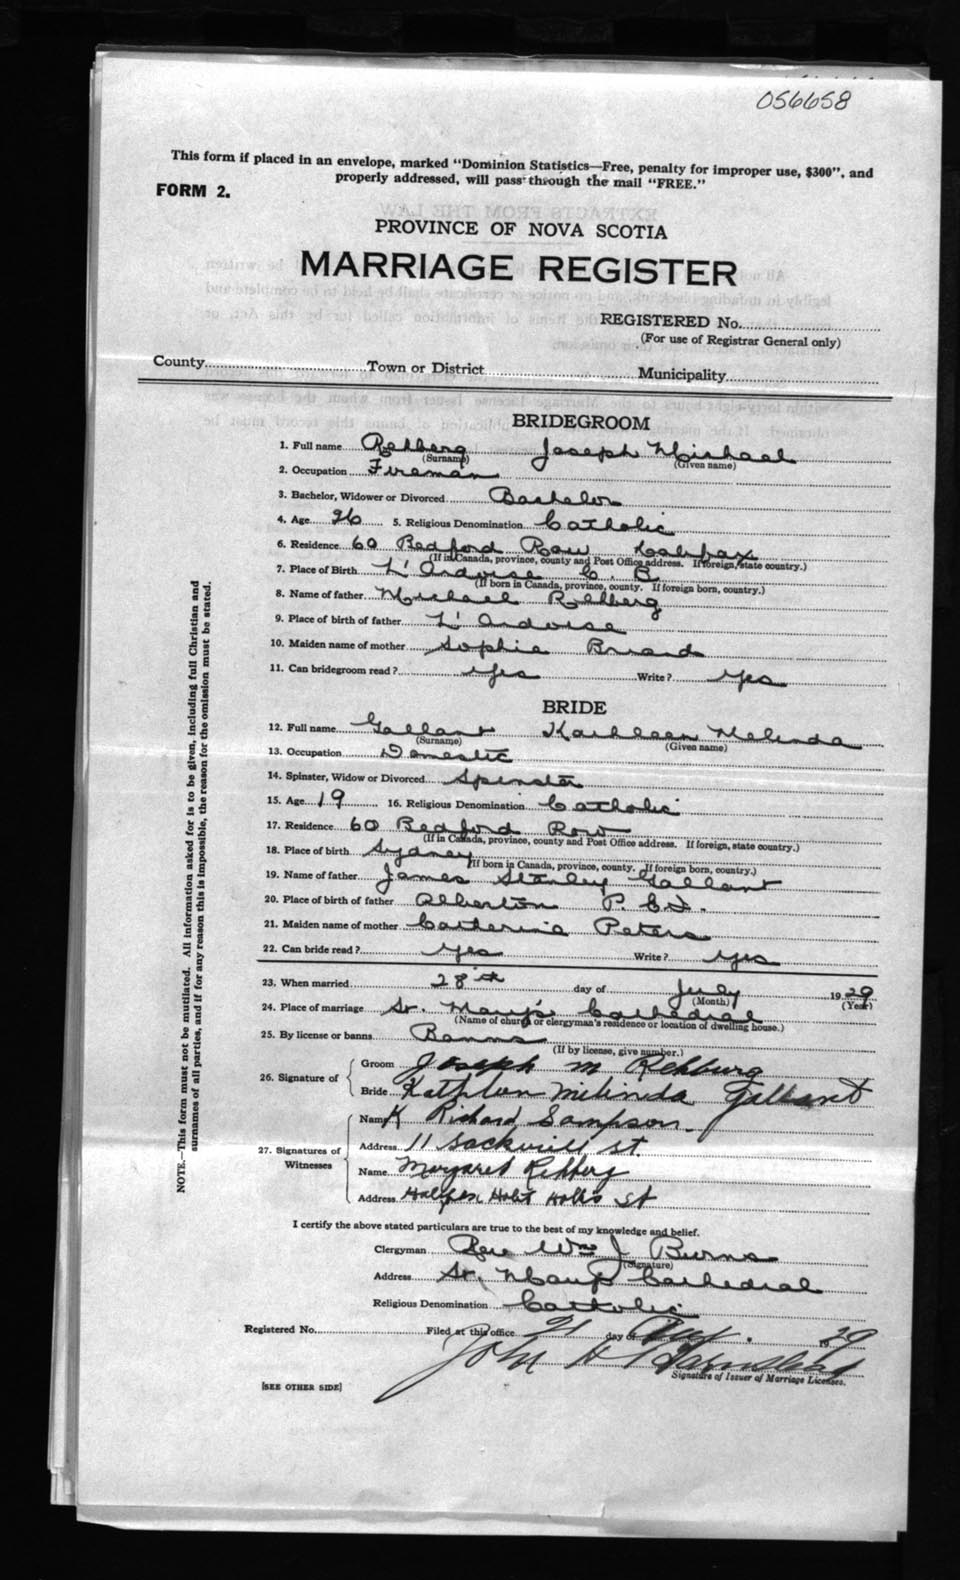 056658
This form if placed in an envelope, marked "Dominion Statistics—Free, penalty for improper use, $300", and
properly addressed, will pass through the mail "FREE."
FORM 2.
PROVINCE OF NOVA SCOTIA
MARRIAGE REGISTER
REGISTERED No.
(For use of Registrar General only)
County Town or District Municipality
BRIDEGROOM
1. Full name Rehberg Joseph Michael
(Surname) (Given name)
2. Occupation Fireman
3. Bachelor, Widower or Divorced Bachelor
4. Age 26 5. Religious Denomination Catholic
6. Residence 60 Bedford Row Halifax
(If in Canada, province, county and Post Office address. If foreign, state country.)
7. Place of Birth L'Ardoise C. B.
(If born in Canada, province, county. If foreign born, country.)
8. Name of father Michael Rehberg
9. Place of birth of father L'Ardoise
10. Maiden name of mother Sophie Briand
11. Can bridegroom read? Yes Write? Yes
BRIDE
12. Full name Gallant Kathleen Melinda
(Surname) (Given name)
13. Occupation Domestic
14. Spinster, Widow or Divorced Spinster
15. Age 19 16. Religious Denomination Catholic
17. Residence 60 Bedford Row
(If in Canada, province, county and Post Office address. If foreign, state country.)
18. Place of birth Sydney
(If born in Canada, province, county. If foreign born, country.)
19. Name of father James Stanley Gallant
20. Place of birth of father Alberton P. E I.
21. Maiden name of mother Catherine Peters
22. Can bride read? Yes Write? Yes
23. When married 28th day of July 1929
(Month) (Year)
24. Place of marriage St. Mary's Cathedral
(Name of church or clergyman's residence or location of dwelling house.)
25. By license or banns Banns
(If by license, give number.)
26. Signature of Groom Joseph M Rehburg
Bride Kathleen Milinda Gallant
27. Signatures of Witnesses
Name Richard Sampson
Address 11 Sackvill St.
Name Margaret Rehberg
Address Halifax Hollis St
I certify the above stated particulars are true to the best of my knowledge and belief.
Clergyman Rev Wm J Burns
(Signature)
Address St. Mary's Cathedral
Religious Denomination Catholic
Registered No. Filed at this office 21 day of Aug. 1929
John H
Signature of Issuer of Marriage Licenses.
[SEE OTHER SIDE]
NOTE.—This form must not be mutilated. All information asked for is to be given, including full Christian and
surnames of all parties, and if for any reason this is impossible, the reason for the omission must be stated.